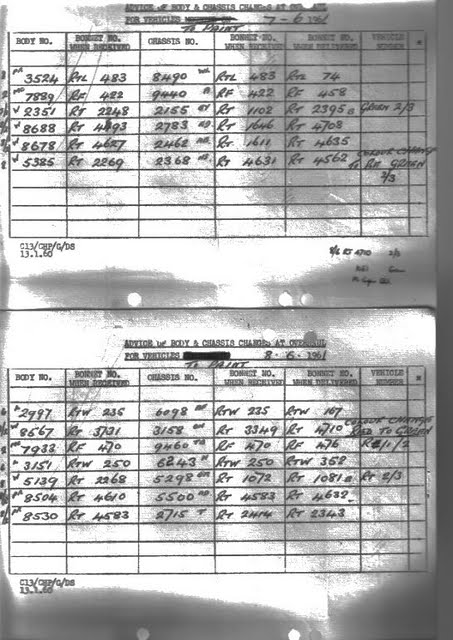 ADVICE OF BODY & CHASSIS CHANGES AT
FOR VEHICLES 7-6 1961
TO PAINT
BODY NO. BONNET NO. WHEN RECEIVED CHASSIS NO. BONNET NO. WHEN RECEIVED BONNET NO. WHEN DELIVERED VEHICLE NUMBER
3524 RTL 483 8490 RTL 483 RTL 74
7889 RF 422 9440 RF 422 RF 458
2351 RT 2248 2155 RT 1102 RT 2395 GREEN 2/3
8688 RT 4493 2783 RT 1646 RT 4708
8678 RT 4627 2462 RT 1611 RT 4635
5385 RT 2269 2368 RT 4631 RT 4562 COLOUR CHANGE TO RT GREEN 2/3
C13/CHP/G/DS
13.1.60
RT 4710 2/3
ADVICE OF BODY & CHASSIS CHANGES AT OVERHAUL
FOR VEHICLES 8.6.1961
TO PAINT
BODY NO. BONNET NO. WHEN RECEIVED CHASSIS NO. BONNET NO. WHEN RECEIVED BONNET NO. WHEN DELIVERED VEHICLE NUMBER
2997 RTW 235 6098 RTW 235 RTW 167
8567 RT 3731 3158 RT 3349 RT 4710 COLOUR CHANGE RED TO GREEN
7933 RF 470 9460 RF 470 RF 476
3151 RTW 250 6243 RTW 250 RTW 352
5139 RT 2268 5298 RT 1072 RT 1081 RT 2/3
8504 RT 4610 5500 RT 4583 RT 4632
8530 RT 4583 2715 RT 2414 RT 2343
C13/CHP/G/DS
13.1.60